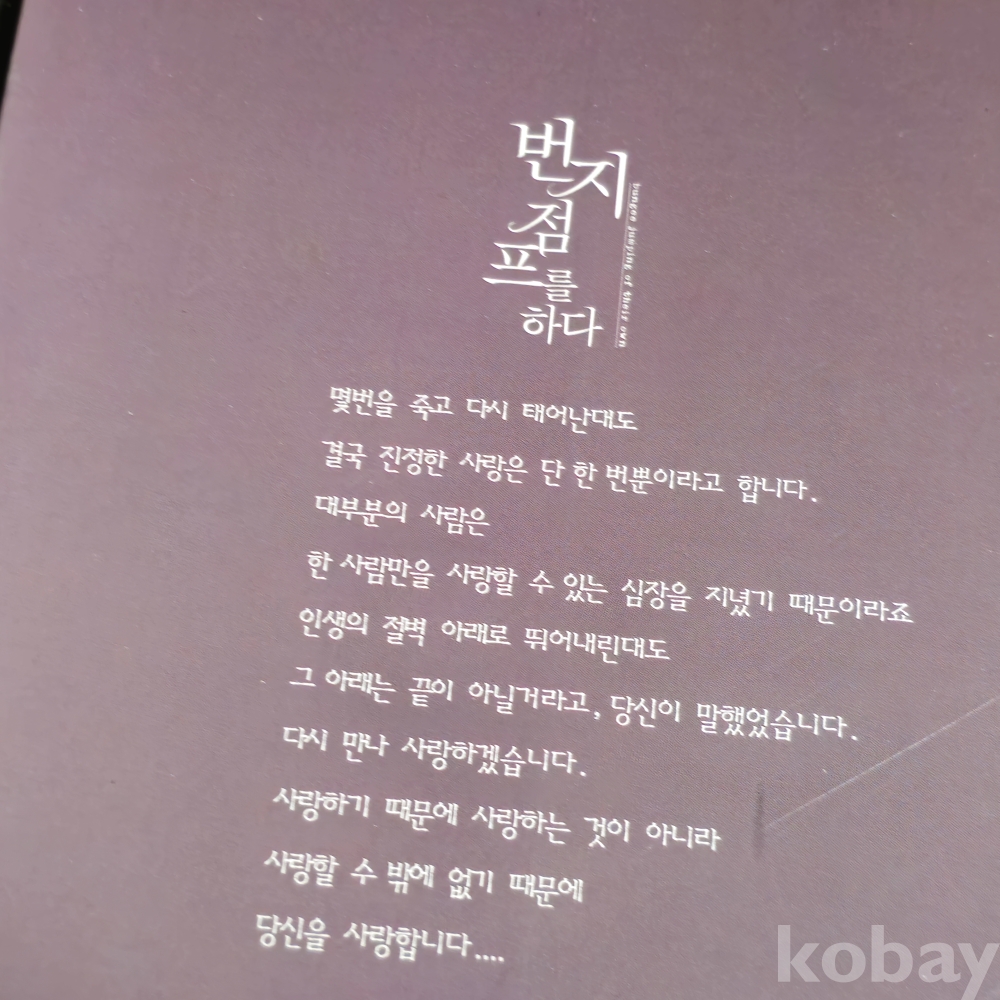 번지
점
프를
하다
bungee jumping of their own
몇번을 죽고 다시 태어난대도
결국 진정한 사랑은 단 한 번뿐이라고 합니다.
대부분의 사람은
한 사람만을 사랑할 수 있는 심장을 지녔기 때문이라죠
인생의 절벽 아래로 뛰어내린대도
그 아래는 끝이 아닐거라고, 당신이 말했었습니다.
다시 만나 사랑하겠습니다.
사랑하기 때문에 사랑하는 것이 아니라
사랑할 수 밖에 없기 때문에
당신을 사랑합니다....
kobay